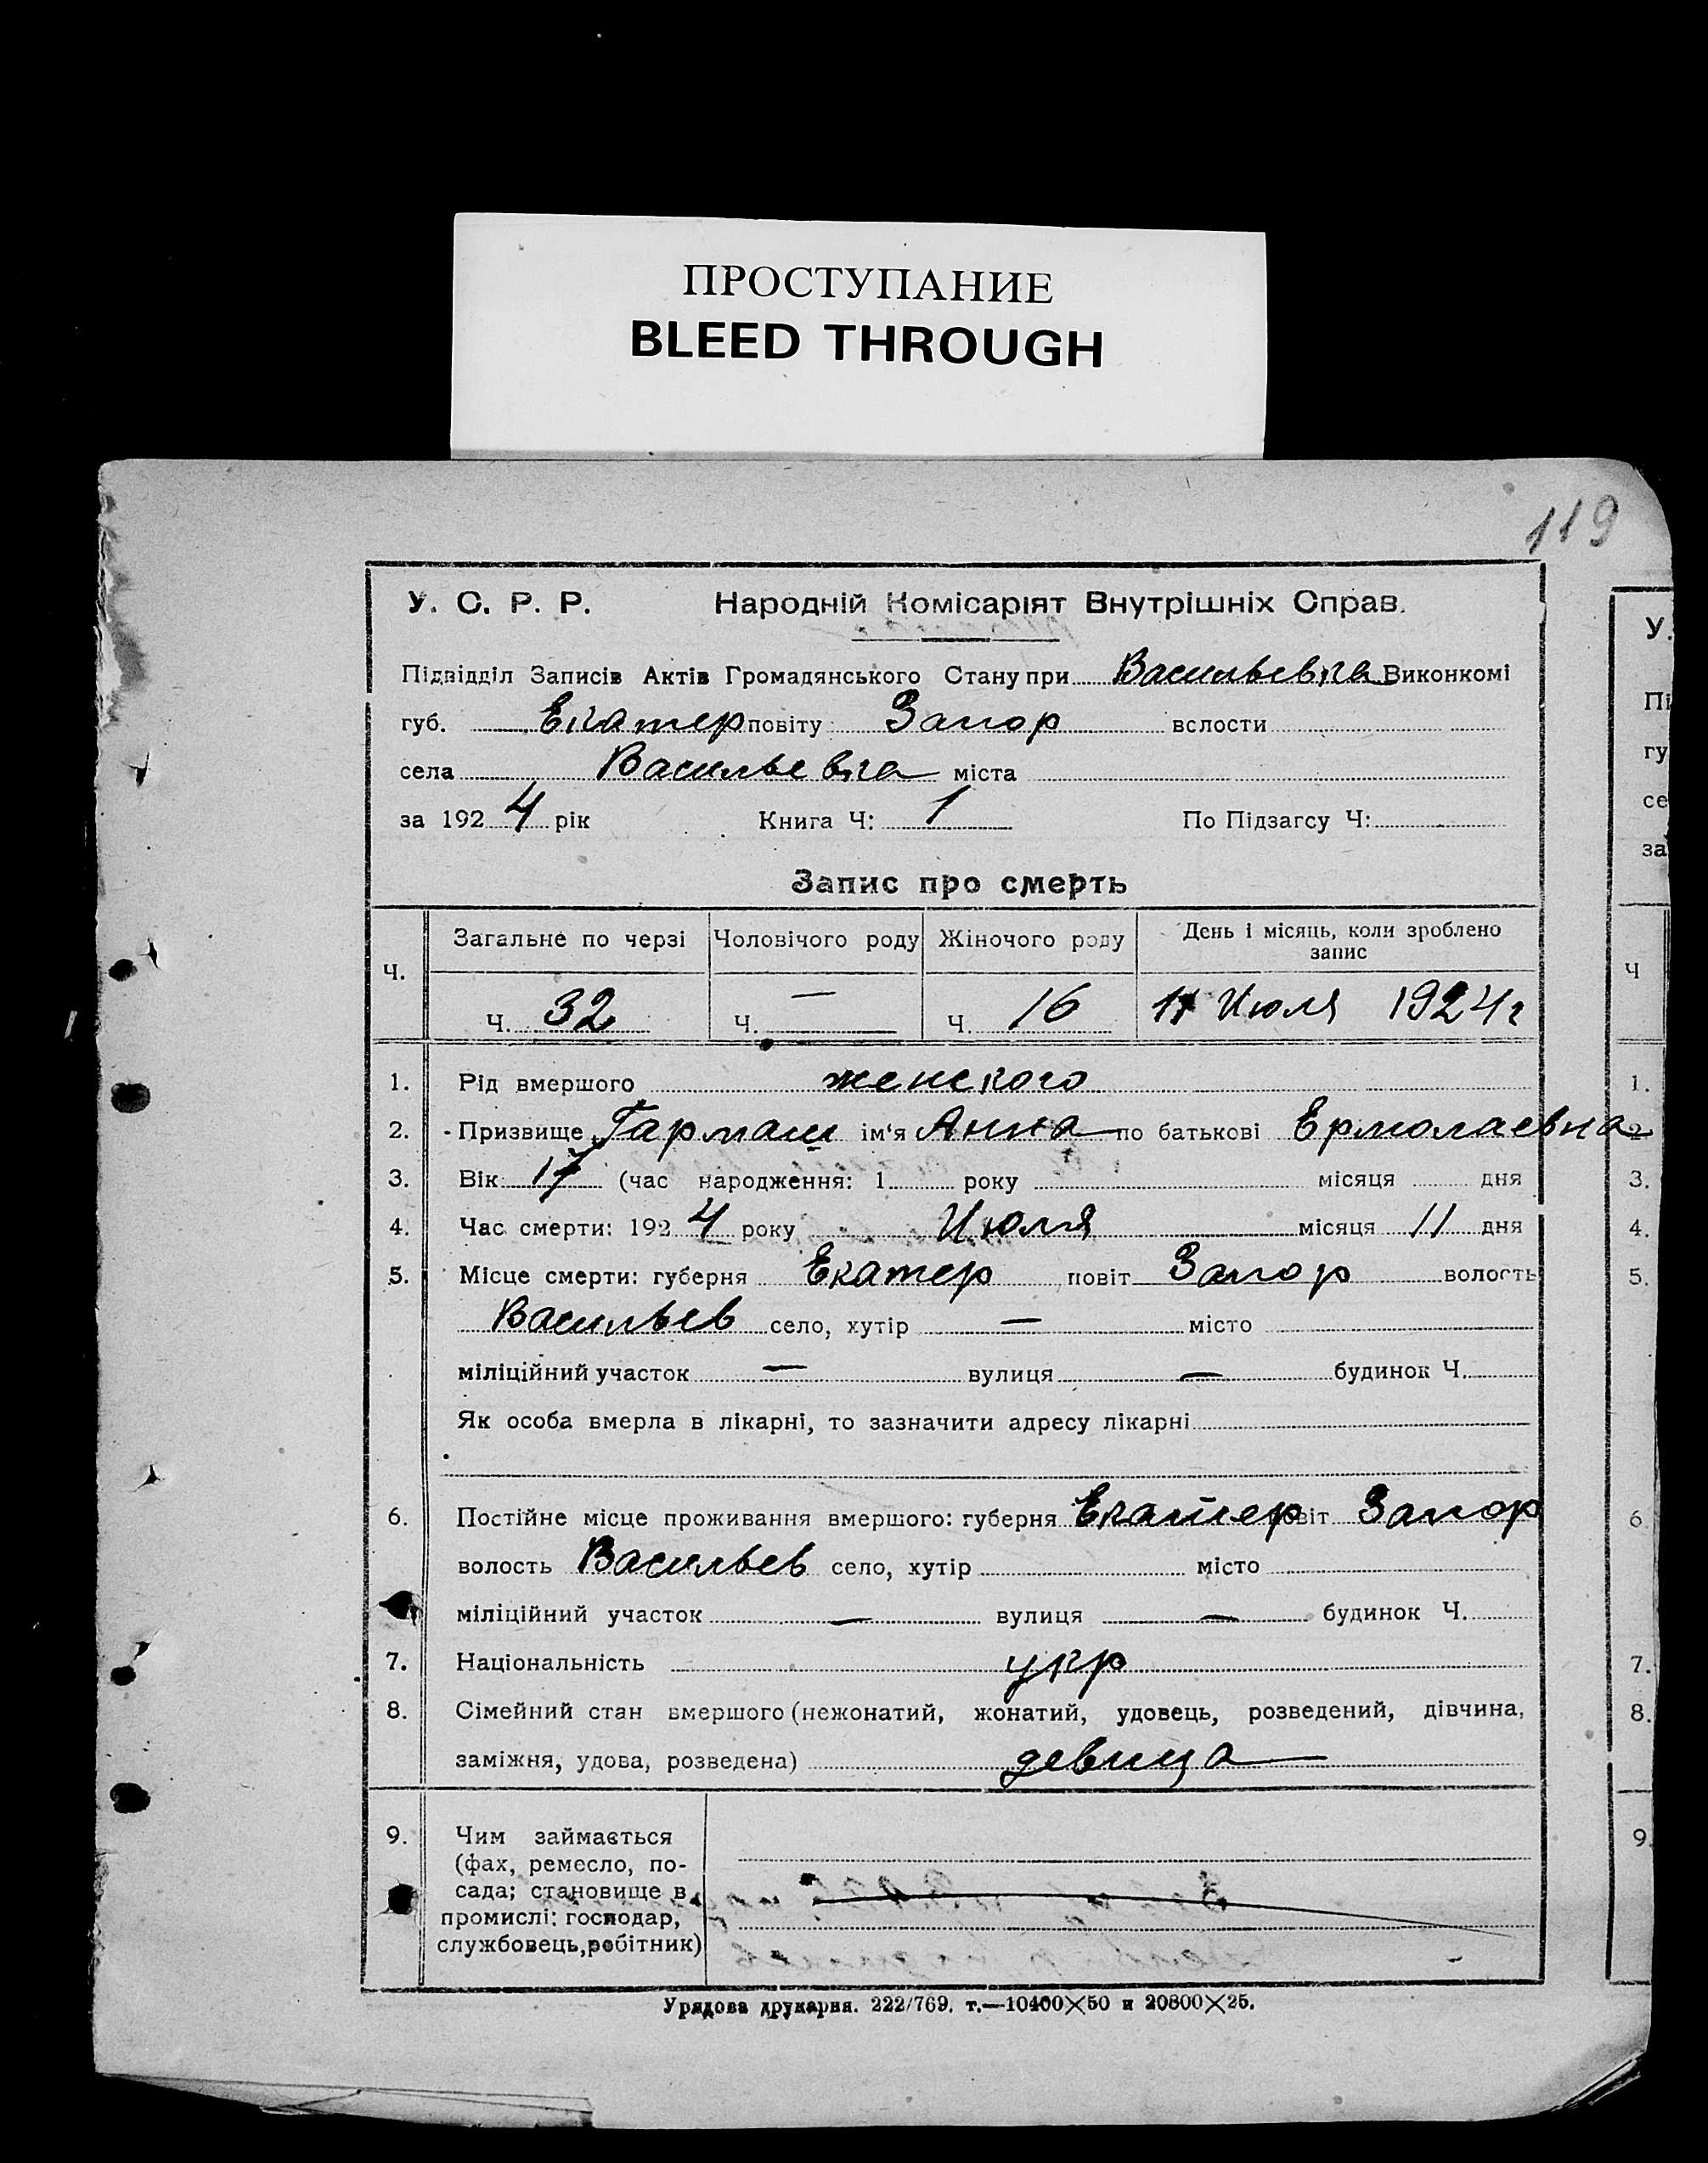 ПРОСТУПАНИЕ
BLEED THROUGH
119
У. С. Р. Р. Народній Комісаріят Внутрішніх Справ.
Підвідділ Записів Актів Громадянського Стану при Васильевка Виконкомі
губ. Екатер повіту Запор вслости
села Васильевка міста
за 1924 рік Книга Ч: 1 По Підзагсу Ч:
Запис про смерть
Ч. Загальне по черзі Чоловічого роду Жіночого роду День і місяць, коли зроблено запис
Ч. 32 Ч. — Ч. 16 11 Июля 1924 г
1. Рід вмершого женского
2. Призвище Гармаш ім‘я Анна по батькові Ермолаевна
3. Вік 17 (час народження: 1 року місяця дня
4. Час смерти: 1924 року Июля місяця 11 дня
5. Місце смерти: губерня Екатер повіт Запор волость
Васильев село, хутір — місто
міліційний участок — вулиця — будинок Ч.
Як особа вмерла в лікарні, то зазначити адресу лікарні
6. Постійне місце проживання вмершого: губерня Екатер повіт Запор
волость Васильев село, хутір місто
міліційний участок — вулиця — будинок Ч.
7. Національність укр
8. Сімейний стан вмершого (нежонатий, жонатий, удовець, розведений, дівчина,
заміжня, удова, розведена) девица
9. Чим займається
(фах, ремесло, по-
сада; становище в
промислі: господар,
службовець, робітник)
Урядова друкарня. 222/769. т.—10400×50 и 20800×25.
У.
Пі
гу
се
за
Ч
1.
2
3.
4.
5.
6
7.
8.
9.